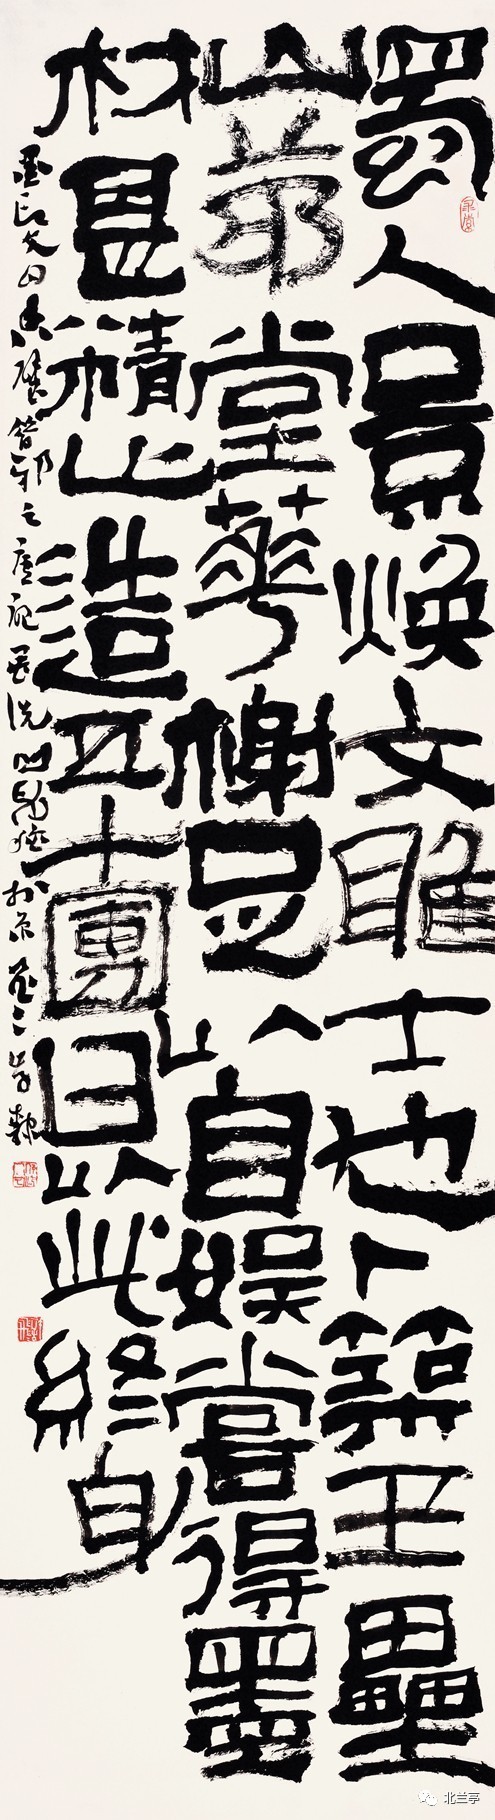 蜀人景煥文雅士也卜築玉壘
山茅堂華榭足以自娛嘗得墨
材甚精止造五十團曰以此終身
墨印文曰香璧
北兰亭